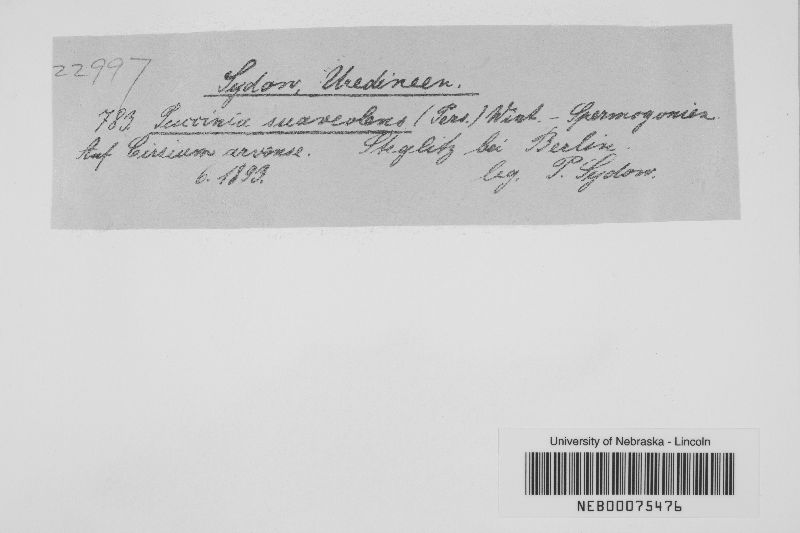 22997
Sydow, Uredineen.
783. Puccinia suaveolens (Pers.) Wint. - Spermogonien
Auf Cirsium arvense. Steglitz bei Berlin.
6. 1893. leg. P. Sydow.
University of Nebraska - Lincoln
NEB00075476